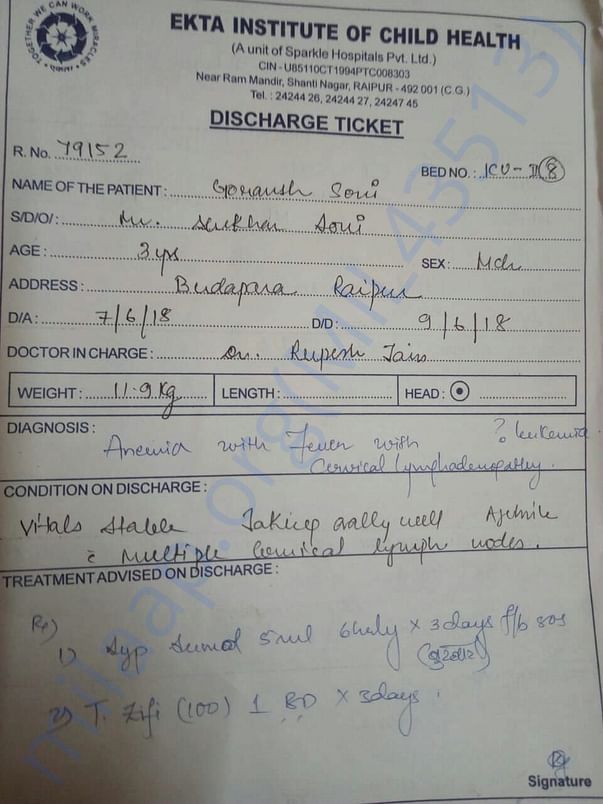 TOGETHER WE CAN WORK MIRACLES
EKTA INSTITUTE OF CHILD HEALTH
(A unit of Sparkle Hospitals Pvt. Ltd.)
CIN - U85110CT1994PTC008303
Near Ram Mandir, Shanti Nagar, RAIPUR - 492 001 (C.G.)
Tel. : 24244 26, 24244 27, 24247 45
DISCHARGE TICKET
R. No. 79152
BED NO. : ICU - II 8
NAME OF THE PATIENT : Goransh Soni
S/D/O/ : Mr. Soni
AGE : 3 yrs SEX : Mch
ADDRESS : Budapara Raipur
D/A : 7/6/18 D/D : 9/6/18
DOCTOR IN CHARGE : Dr. Rupesh Jain
WEIGHT : 11.9 Kg LENGTH : HEAD :
DIAGNOSIS : ? leukemia
Anemia with Fever with
Cervical lymphadenopathy.
CONDITION ON DISCHARGE :
Vitals Stable Taking orally well Afebrile
c̄ Multiple Cervical lymph nodes.
TREATMENT ADVISED ON DISCHARGE :
Rx)
1) Syp 5ml 6hrly x 3 days f/b sos
(बुखार)
2) T. Zifi (100) 1 BD x 3days
Signature
milaap.org(MIL_43513)